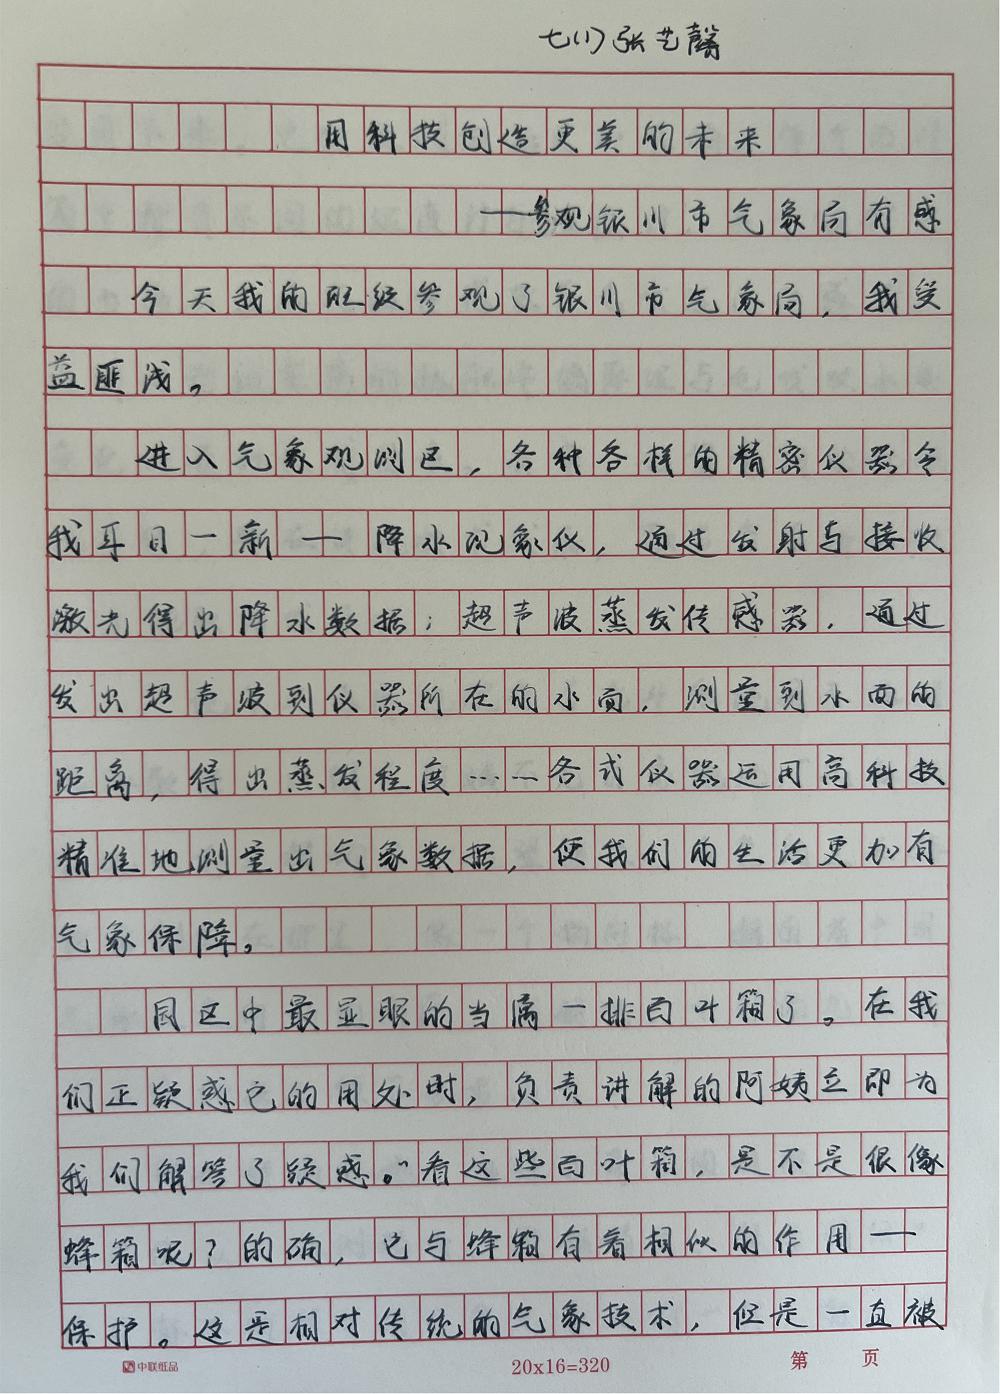 七(1)张艺馨
用科技创造更美的未来
——参观银川市气象局有感
今天我的班级参观了银川市气象局，我受
益匪浅。
进入气象观测区，各种各样的精密仪器令
我耳目一新——降水现象仪，通过发射与接收
激光得出降水数据；超声波蒸发传感器，通过
发出超声波到仪器所在的水面，测量到水面的
距离，得出蒸发程度……各式仪器运用高科技
精准地测量出气象数据，使我们的生活更加有
气象保障。
园区中最显眼的当属一排百叶箱了。在我
们正疑惑它的用处时，负责讲解的阿姨立即为
我们解答了疑惑。“看这些百叶箱，是不是很像
蜂箱呢？的确，它与蜂箱有着相似的作用——
保护。这是相对传统的气象技术，但是一直被
中联纸品
20x16=320
第 页